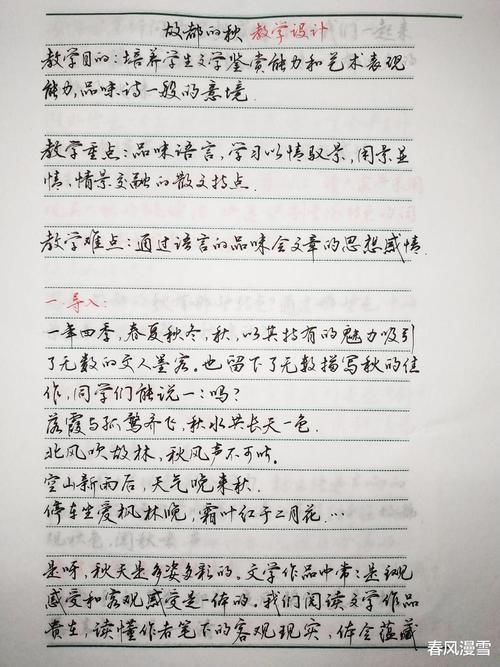 故都的秋 教学设计
教学目的:培养学生文学鉴赏能力和艺术表现
能力,品味诗一般的意境.
教学重点:品味语言,学习以情驭景,用景显
情、情景交融的散文特点.
教学难点:通过语言的品味会文章的思想感情.
一.导入:
一年四季,春夏秋冬,秋,以其特有的魅力吸引
了无数的文人墨客。也留下了无数描写秋的佳
作,同学们能说一:吗?
落霞与孤鹜齐飞,秋水共长天一色.
北风吹故林,秋风声不可听。
空山新雨后,天气晚来秋.
停车坐爱枫林晚,霜叶红于二月花.…
是呀,秋天是多姿多彩的。文学作品中常:是主观
感受和客观感受是一体的。我们阅读文学作品
贵在,读懂作者笔下的客观现实,体会蕴藏
春风漫雪